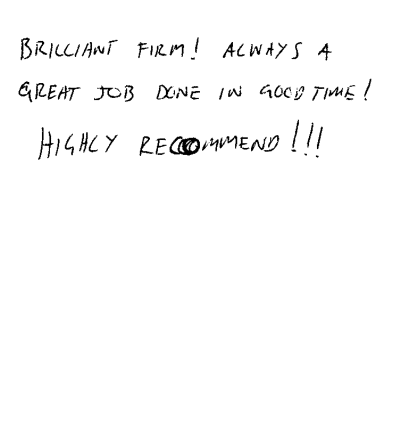 BRILLIANT FIRM! ALWAYS A
GREAT JOB DONE IN GOOD TIME!
HIGHLY RECOMMEND!!!